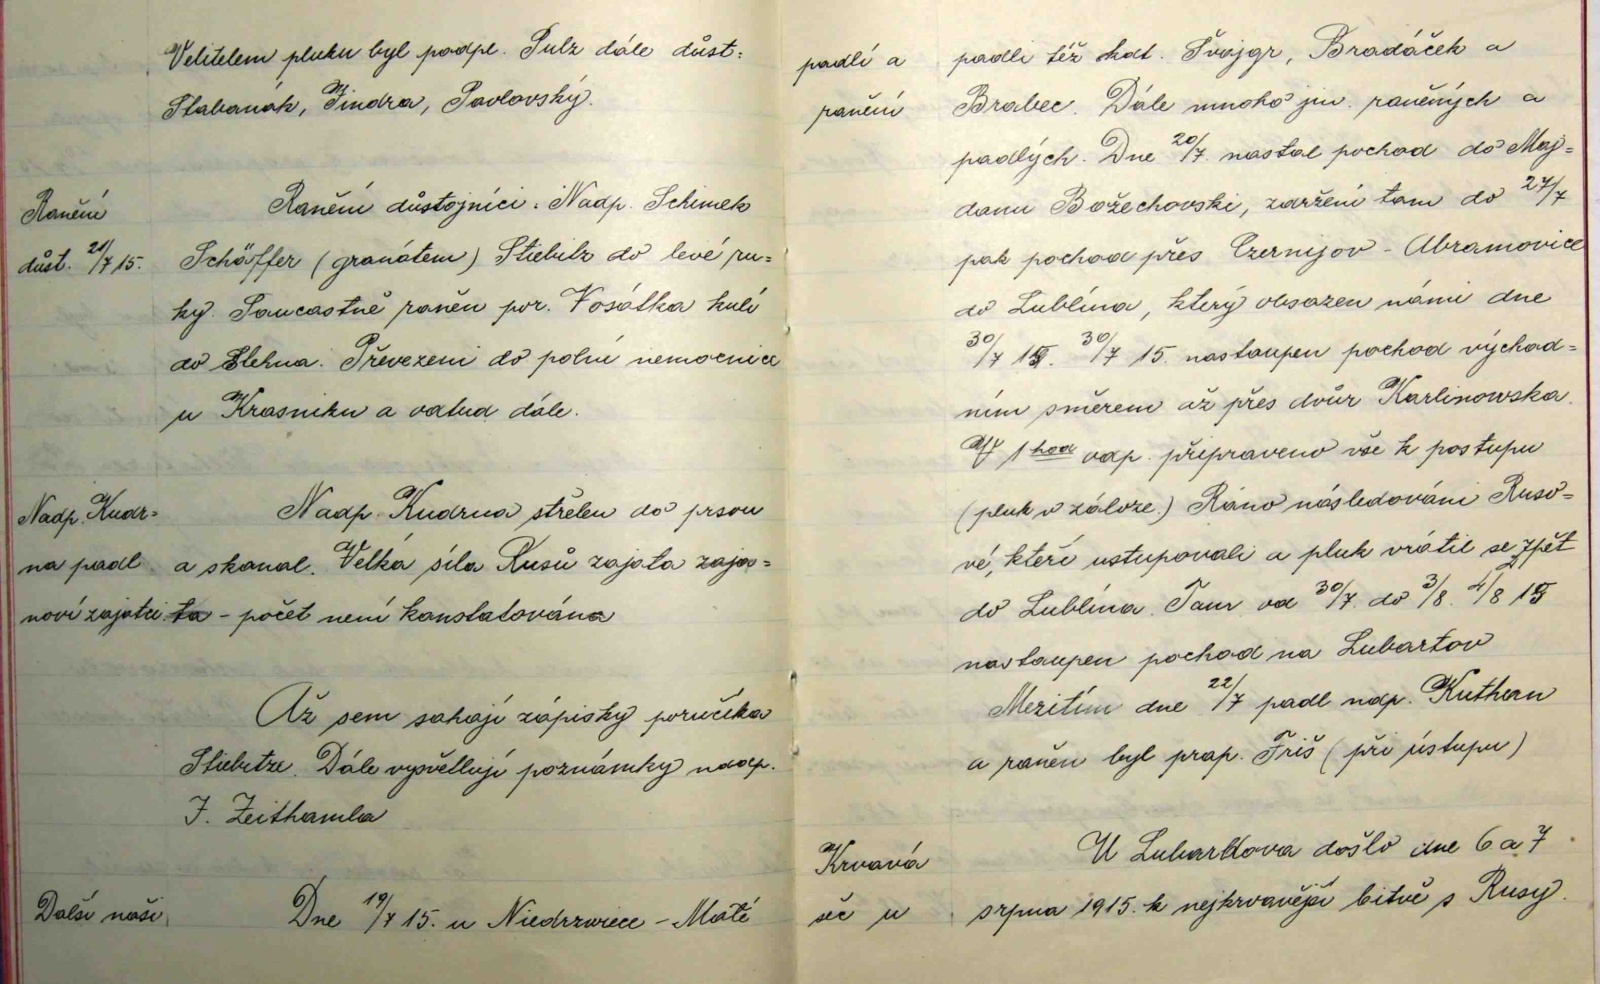 Velitelem pluku byl podpl. Pulz dále důst:
Slabanák, Jindra, Pavlovský.
Ranění
důst. 21/7 15.
Ranění důstojníci: Nadp. Schimek
Schöffer (granátem) Stiebitz do levé ru=
ky. Součastně raněn por. Vosátka kulí
do stehna. Převezeni do polní nemocnice
u Krasniku a odtud dále.
Nadp. Kudr=
na padl
noví zajatci
Nadp. Kudrna střelen do prsou
a skonal. Velká síla Rusů zajata zaja=
ta – počet není konstatována
Až sem sahají zápisky poručíka
Stiebitze. Dále vysvětlují poznámky nadp.
J. Zeithamla
Další naši
Dne 19/7 15. u Niedrzwiece – Malé
padlí a
ranění
padli též kdt. Švajgr, Bradáček a
Brabec. Dále mnoho jin. raněných a
padlých. Dne 20/7. nastal pochod do Maj=
danu Božechovski, zdržení tam do 27/7
pak pochod přes Czernijov - Abramovice
do Lublína, který obsazen námi dne
30/7 15. 30/7 15. nastoupen pochod východ=
ním směrem až přes dvůr Karlinowska.
V 1 hod odp. připraveno vše k postupu
(pluk v záloze.) Ráno následováni Ruso=
vé, kteří ustupovali a pluk vrátil se zpět
do Lublína. Tam od 30/7. do 3/8. 4/8 15
nastoupen pochod na Lubartov
Mezitím dne 22/7 padl ndp. Kuthan
a raněn byl prap. Friš (při ústupu)
Krvavá
seč u
U Lubartova došlo dne 6 a 7
srpna 1915. k nejkrvavější bitvě s Rusy.